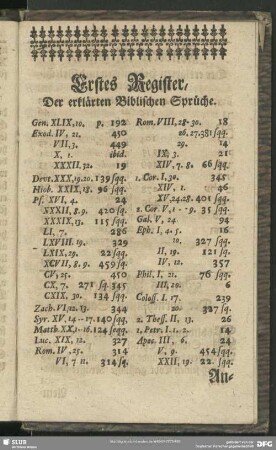 Erstes Register,
Der erklärten Biblischen Sprüche.
Gen. XLIX, 10. p. 192
Exod. IV, 21. 450
VII, 3. 449
X, 1. ibid.
XXXII, 32. 19
Devt. XXX, 19. 20. 139 sqq.
Hiob. XXIX, 18. 96 sqq.
Ps. XVI, 4. 24
XXXII, 8. 9. 420 sq.
XXXIX, 13. 115 sqq.
LI, 7. 286
LXVIII. 19. 329
LXIX, 29. 22 sqq.
XCVII, 8. 9. 459 sq.
CV, 25. 450
CX, 7. 271 sq. 345
CXIX, 30. 134 sqq.
Zach. VI, 12. 13. 344
Syr. XV, 14--17. 140 sqq.
Matth. XX, 1-16. 124 seqq.
Luc. XIX, 12. 327
Rom. IV, 25. 314
VI, 7 n. 314 sq.
Rom. VIII, 28-30. 18
26. 27. 381 sqq.
29. 14
IX, 3. 21
XIV, 7. 8. 66 sqq.
1. Cor. I, 30. 345
XIV, 1. 46
XV, 24. 28. 401 sqq.
2. Cor. V, 1--9. 35 sqq.
Gal. V, 24. 94
Eph. I, 4. 5. 16
10. 327 sqq.
II, 19. 121 sq.
IV, 12. 357
Phil. I, 21. 76 sqq.
III, 20. 6
Coloss. I. 17. 239
20. 327 sq.
2. Thess. II, 13. 26
1. Petr. I. 1. 2. 14
Apoc. III, 6. 24
V, 9. 454 sqq.
XXII, 19. 22 sqq.
An-